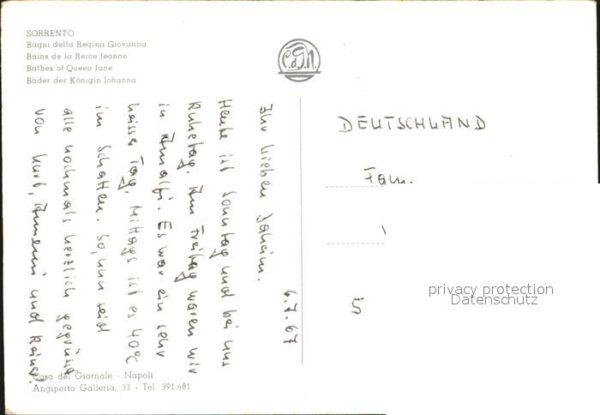 SORRENTO
Bagni della Regina Giovanna
Bains de la Reine Jeanne
Bathes of Queen Jane
Bäder der Königin Johanna
6.7.67
Ihr lieben daheim.
Heute ist Sonntag und bei uns
Ruhetag. Am Freitag waren wir
in Amalfi. Es war ein sehr
heisser Tag. Mittags ist es 40°C
im Schatten. So, nun seid
alle nochmals herzlich gegrüsst
von Kurt, und Rainer.
DEUTSCHLAND
Fam.
5
privacy protection
Datenschutz
Casa del Giornale - Napoli
Angiporto Galleria, 33 - Tel. 391.481